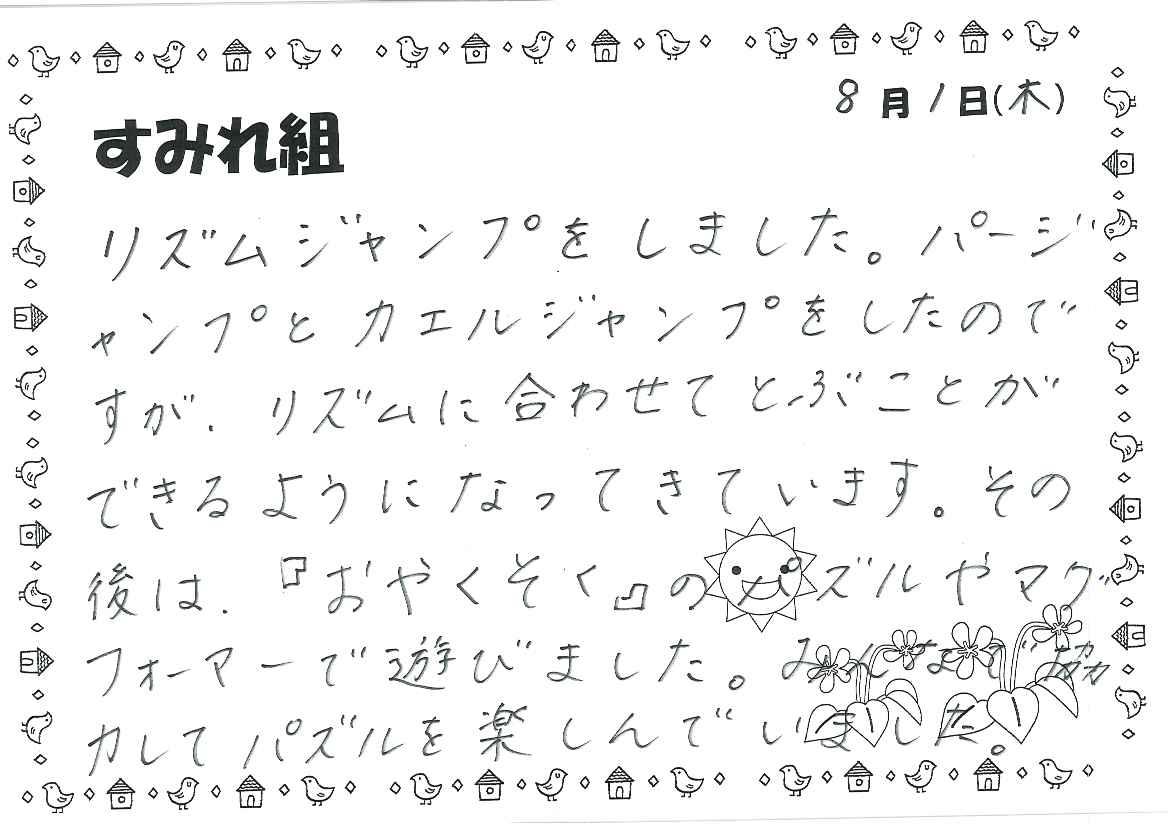 8月1日(木)
すみれ組
リズムジャンプをしました。パージ
ャンプとカエルジャンプをしたので
すが、リズムに合わせてとぶことが
できるようになってきています。その
後は、『おやくそく』のパズルやマグ
フォーマーで遊びました。みんなで協
力してパズルを楽しんでいました。